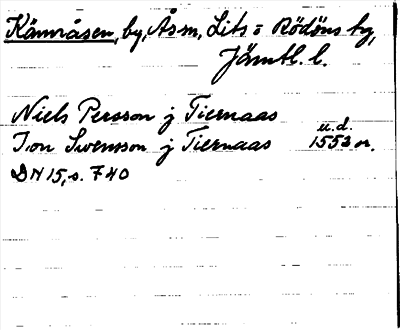 Kännåsen, by, Ås sn, Lits o Rödöns tg,
Jämtl. l.
Niels Persson j Tiernaas
u.d.
Ion Swensson j Tiernaas 1553 or.
DN 15, s. 740